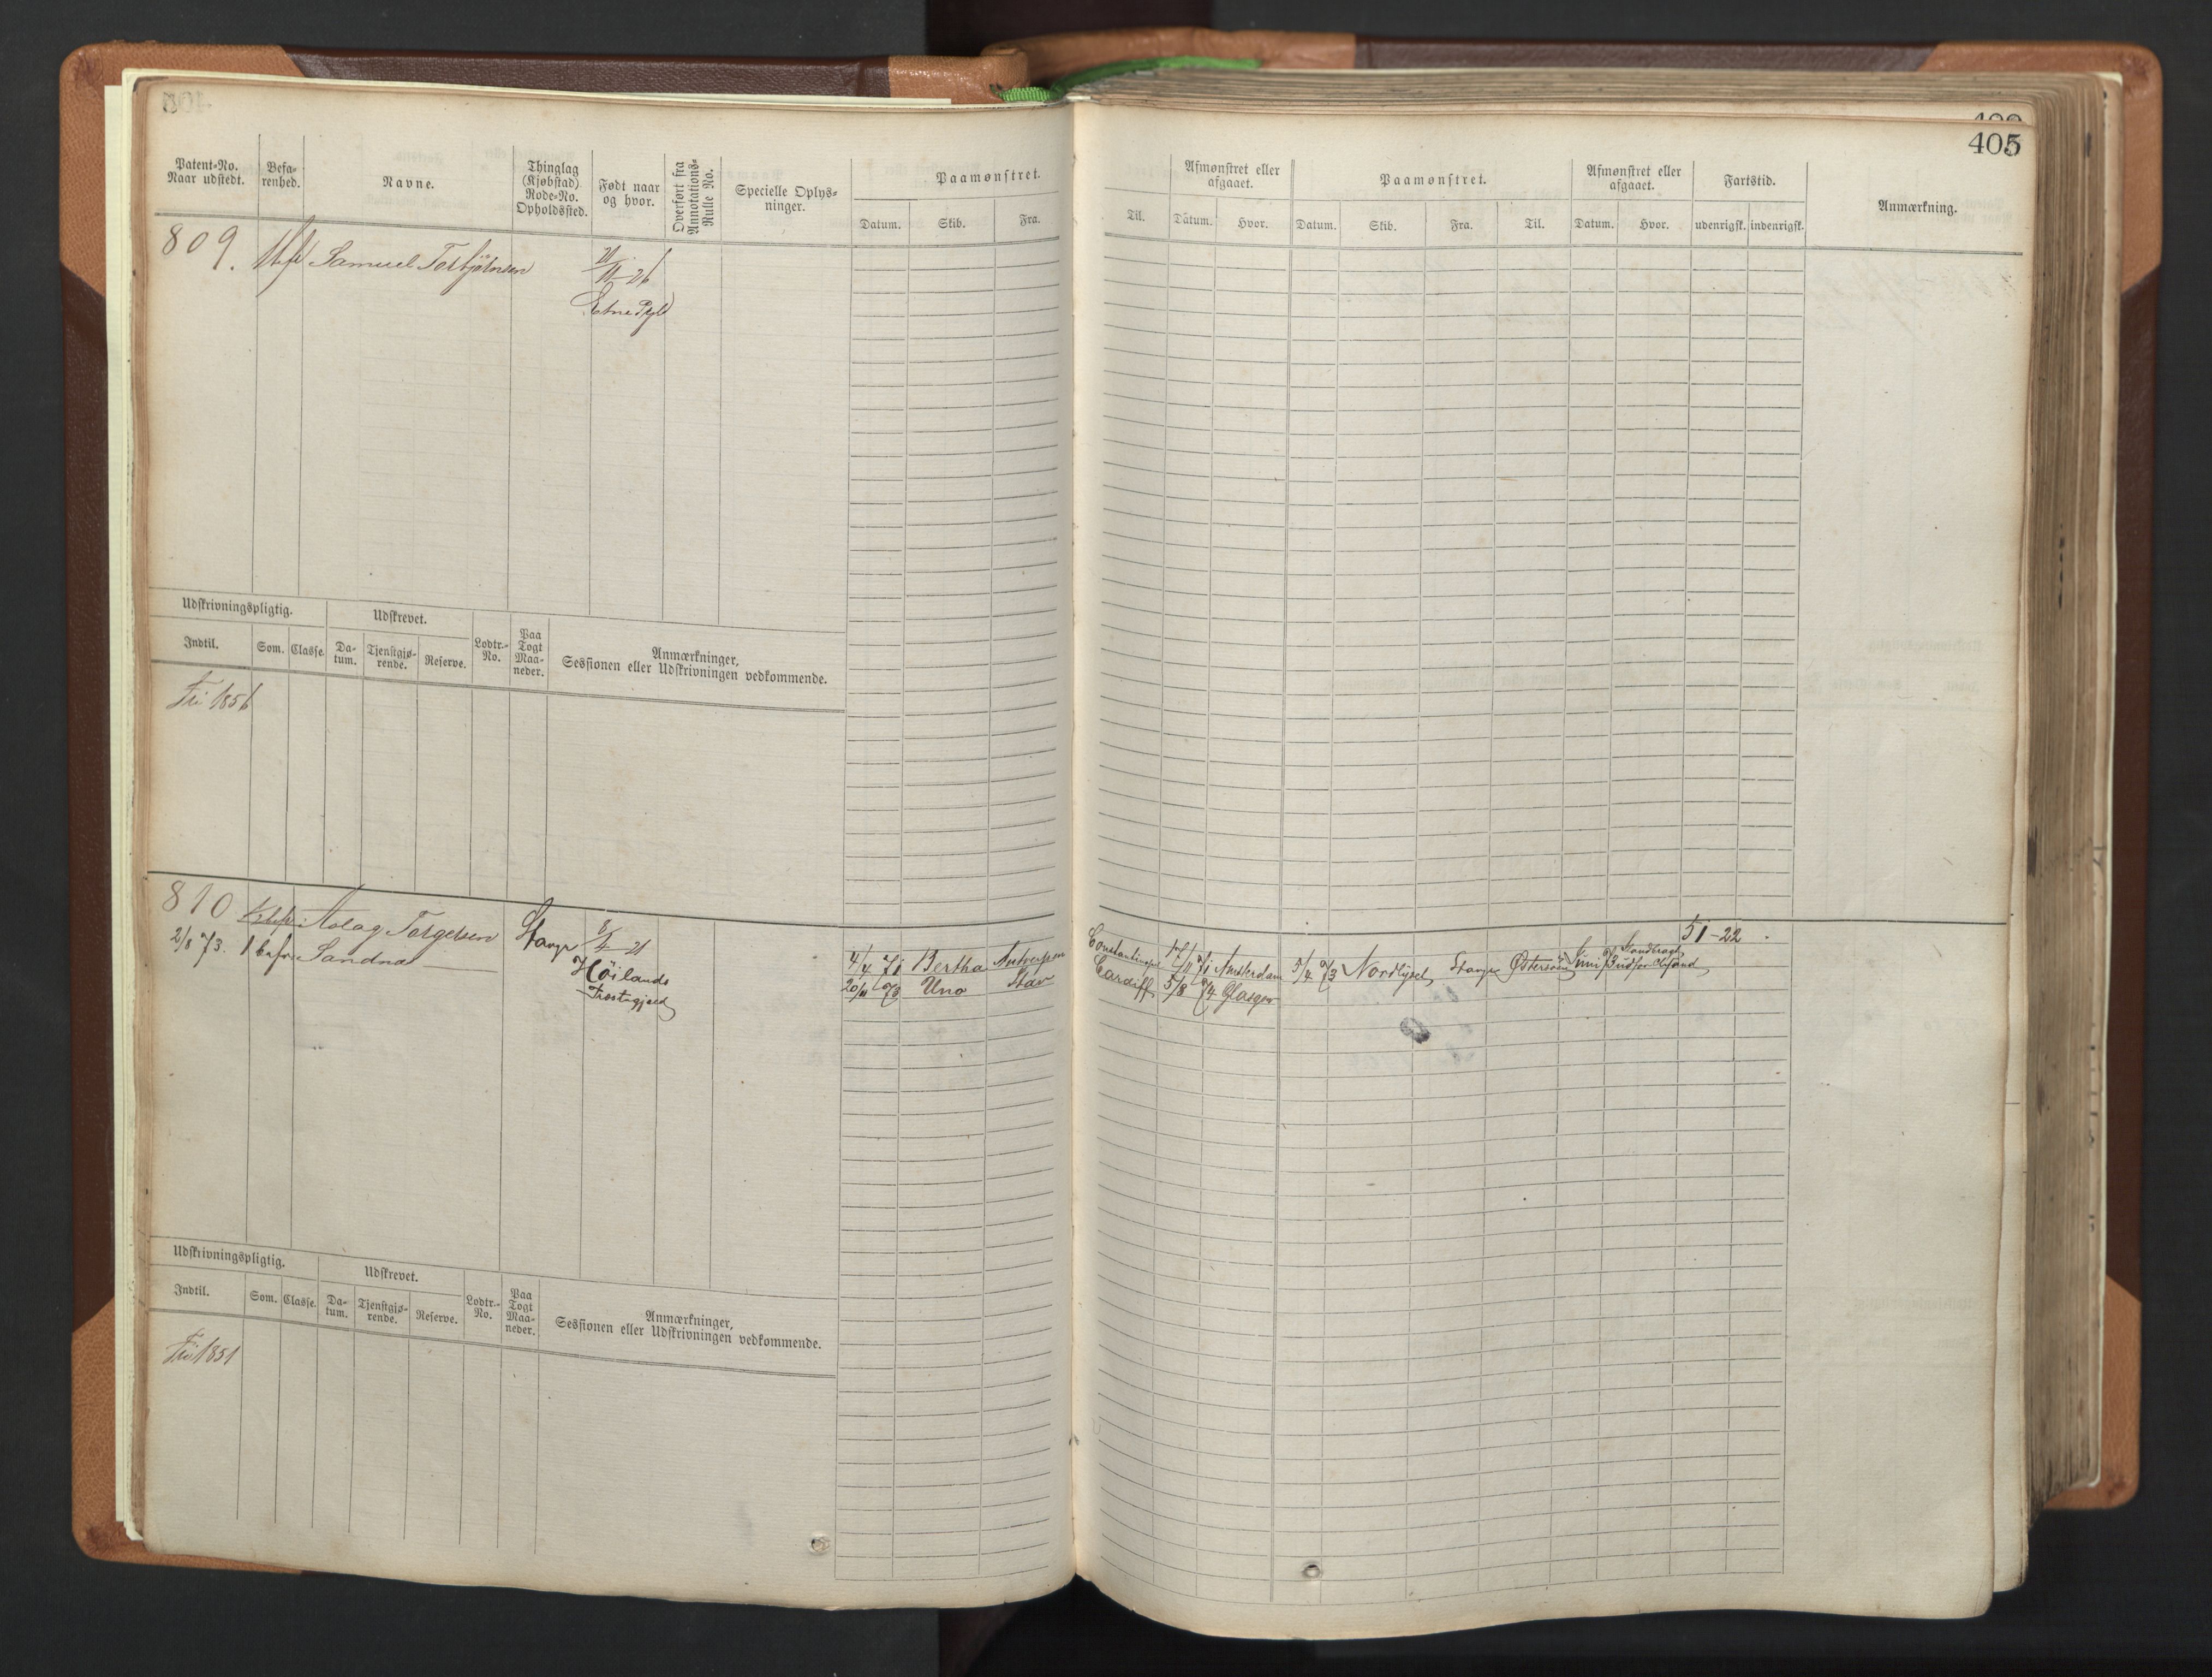 405
Patent-No. Naar udstedt.
Befarenhed.
Navne.
Thinglag (Kjøbstad) Rode-No. Opholdssted.
Født naar og hvor.
Overført fra Annotations-Rulle No.
Specielle Oplysninger.
Paamønstret.
Datum. Skib. Fra.
Til.
Afmønstret eller afgaaet.
Datum. Hvor.
Paamønstret.
Datum. Skib. Fra. Til.
Afmønstret eller afgaaet.
Datum. Hvor.
Fartstid.
udenrigsk. indenrigsk.
Anmærkning.
809. Samuel Torbjørnsen
11-26
Etne Pgld
Udskrivningspligtig.
Indtil. Som. Classe.
Udskrevet.
Datum. Tjenstgjørende. Reserve.
Lodtr.-No.
Paa Togt Maaneder.
Anmærkninger,
Sessionen eller Udskrivningen vedkommende.
Fri 1856
810 Aslag Torgersen Stavgr 8/2 21
2/8 73. 1 befr Sandnæs
Höilands
Præstegjeld
51-22
4/4 71 Bertha Antwerpen Constantinopel 71 Amsterdam 5/4 73 Nordlyset Stavgr Østersøen
20/11 73 Uno Stav Cardiff 5/8 74 Glasgow
Udskrivningspligtig.
Indtil. Som. Classe.
Udskrevet.
Datum. Tjenstgjørende. Reserve.
Lodtr.-No.
Paa Togt Maaneder.
Anmærkninger,
Sessionen eller Udskrivningen vedkommende.
Fri 1851